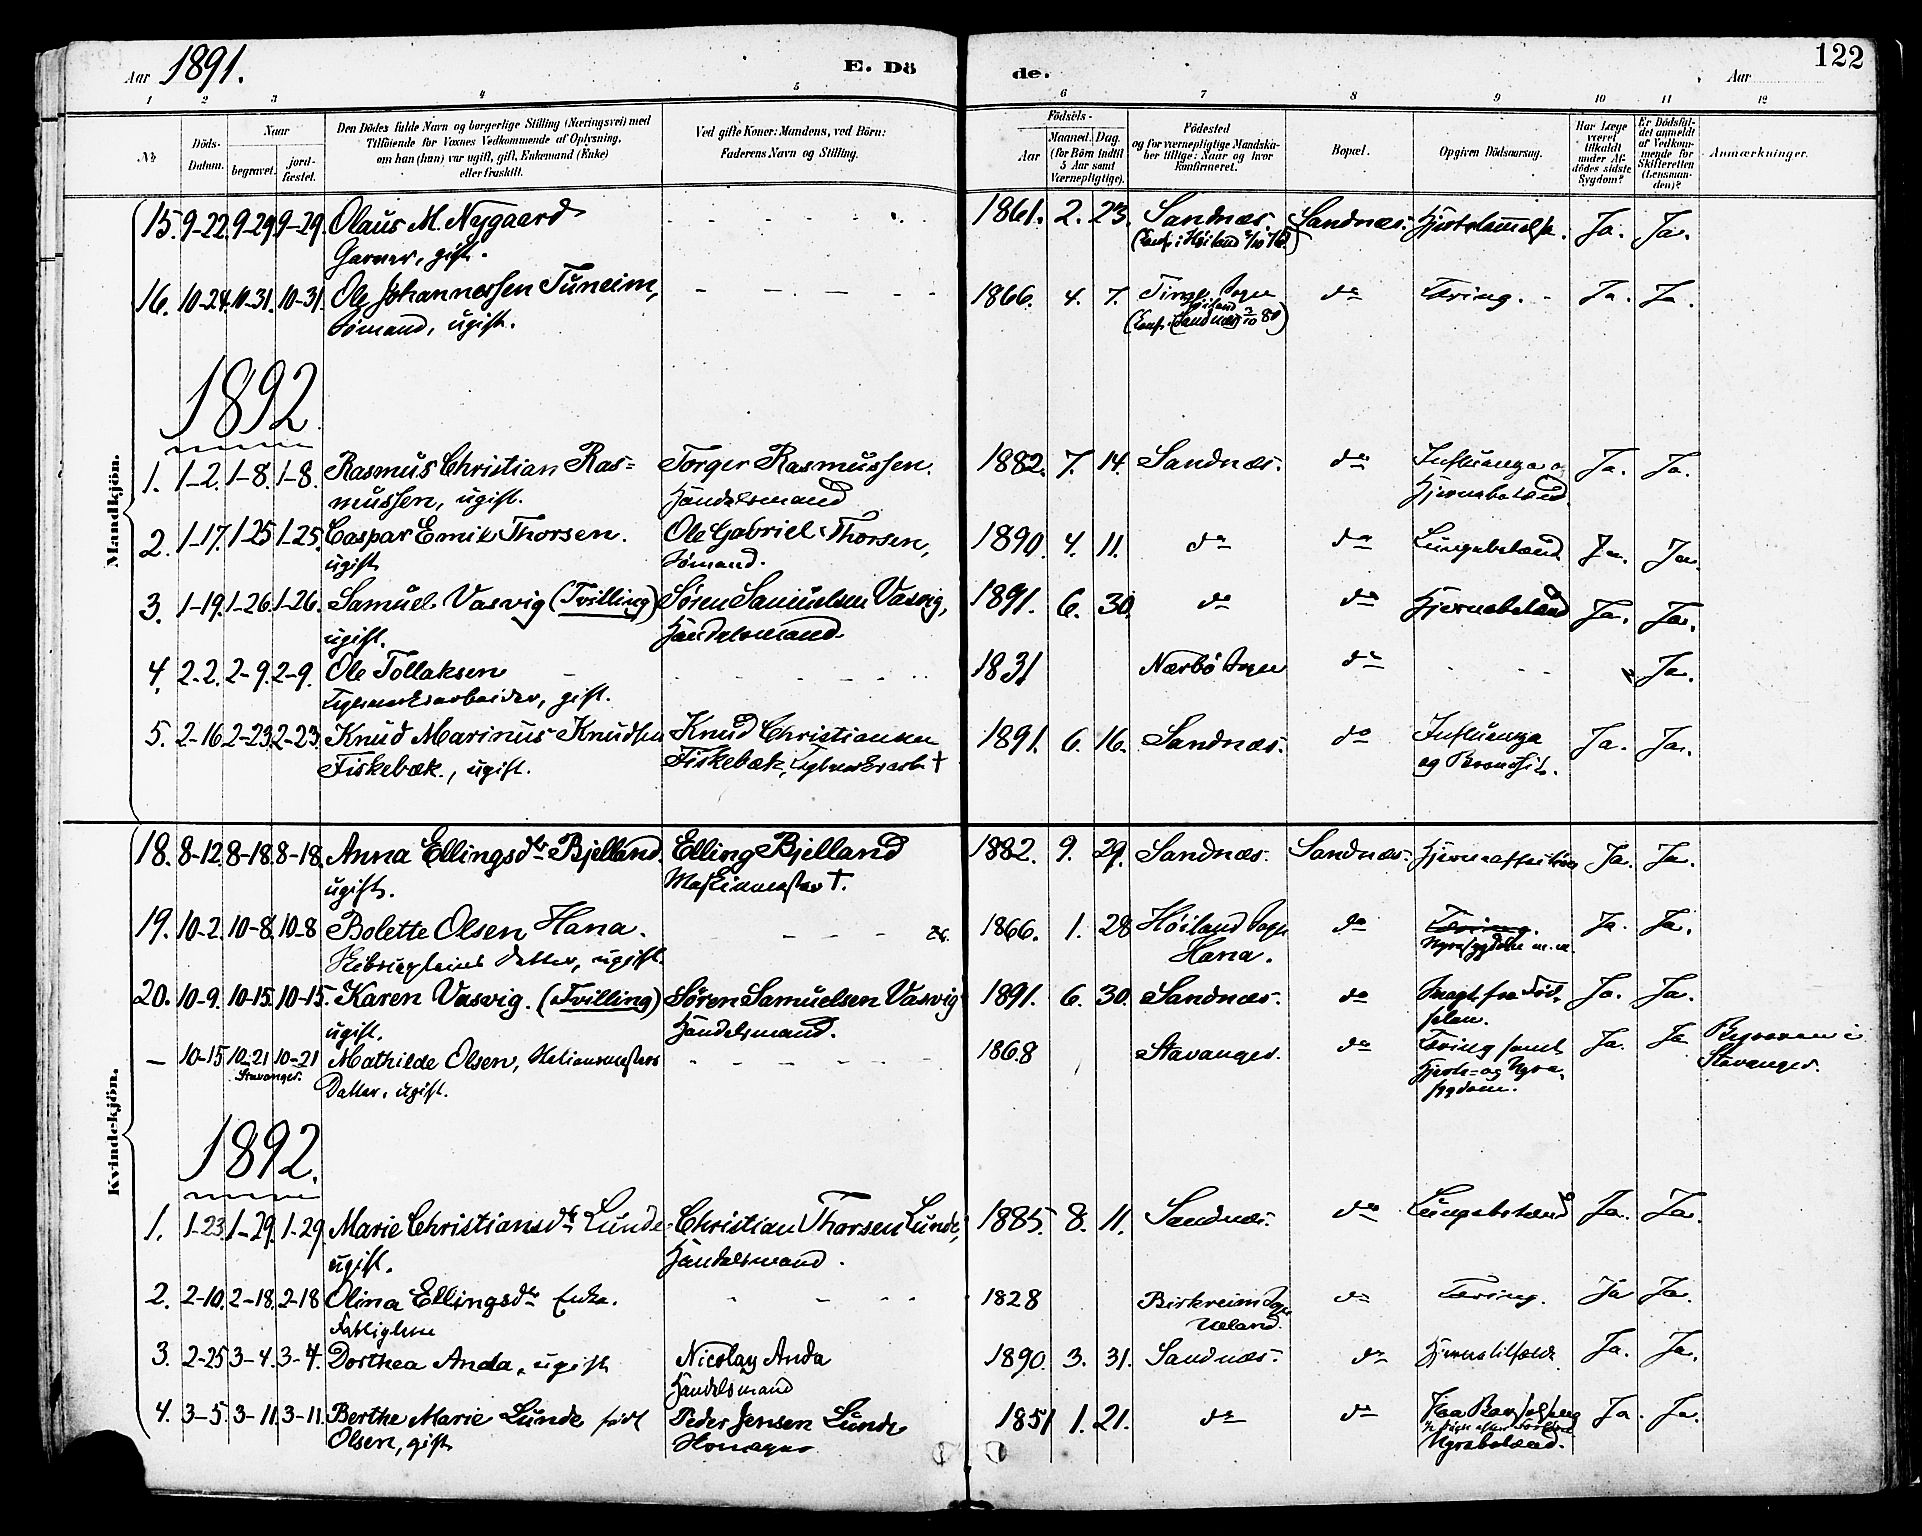 Aar 1891. E. Dö de. Aar 122
1 2 3 4 5 6 7 8 9 10 11 12
№ Döds-Datum. Naar begravet. jordfæstet.
Den Dödes fulde Navn og borgerlige Stilling (Næringsvei) med
Tilföiende for Voxnes Vedkommende af Oplysning,
om han (hun) var ugift, gift, Enkemand (Enke)
eller fraskilt.
Ved gifte Koner: Mandens, ved Börn:
Faderens Navn og Stilling.
Födsels-
Aar Maaned. Dag.
(for Börn indtil
5 Aar samt
Værnepligtige).
Födested
og for værnepligtige Mandskaber tillige: Naar og hvor
konfirmeret.
Bopæl.
Opgiven Dödsaarsag.
Har Læge
været
tilkaldt
under Afdödes sidste
Sygdom?
Er Dödsfaldet anmeldt
af Vedkommende for
Skifteretten
(Lensmanden)?
Anmærkninger.
Mandkjön.
15. 9-22. 9-29. 9-29. Olaus M. Nygaard - - - 1861. 2. 23. Sandnæs. Sandnæs. Hjertelammelse. Ja. Ja.
Garver, gift. (Conf. i Høiland
16. 10-24. 10-31. 10-31. Ole Johannessen Tuneim, - - - 1866. 4. 7. Tinge Sogn do Tæring. Ja. Ja.
Sømand, ugift. (Conf. i Sandnæs 3/10 80)
1892
1. 1-2. 1-8. 1-8. Rasmus Christian Ras= Torger Rasmussen. 1882. 7. 14. Sandnæs. do Influenza o Ja. Ja.
mussen, ugift. Handelsmand Hjernebetænd.
2. 1-17. 1-25. 1-25. Caspar Emil Thorsen. Ole Gabriel Thorsen, 1890. 4. 11. do do Lungebetænd. Ja. Ja.
ugift Sømand.
3. 1-19. 1-26. 1-26. Samuel Vasvig (Tvilling) Søren Samuelsen Vasvig, 1891. 6. 30. do do Hjernebetænd Ja. Ja.
ugift. Handelsmand.
4. 2-2. 2-9. 2-9. Ole Tollaksen - - - 1831 Nærbö Sogn do - - - Ja.
Teglværksarbeider, gift.
5. 2-16. 2-23. 2-23. Knud Marinus Knudsen Knud Christiansen 1891. 6. 16. Sandnæs. do Influenza Ja. Ja.
Fiskebæk., ugift. Fiskebæk, Teglværksarb † og Bronchit.
Kvindekjön.
18. 8-12. 8-18. 8-18. Anna Ellingsdtr Bjelland. Elling Bjelland 1882. 9. 29. Sandnæs. Sandnæs. Hjerneaffektion Ja. Ja.
ugift. Maskinmester †.
19. 10-2. 10-8. 10-8 Bolette Olsen Hana. - - - 1866. 1. 28 Höiland Sogn do Tæring. Ja. Ja.
Datter, ugift. Hana. Nyresygdom m. m.
20. 10-9. 10-15. 10-15. Karen Vasvig. (Tvilling) Søren Samuelsen Vasvig 1891. 6. 30. Sandnæs. do Svagh. fra Föd- Ja. Ja.
ugift. Handelsmand. selen.
— 10-15 10-21 10-21 Mathilde Olsen, Stationsmesters - - - 1868 Stavanger. do Tæring samt Ja. Ja Begraven i
Stavanger. Datter, ugift. Hjerte- og Nyre- Stavanger.
sygdom.
1892.
1. 1-23. 1-29. 1-29. Marie Christiansdtr Lunde Christian Thorsen Lunde, 1885. 8. 11. Sandnæs. do Lungebetænd Ja. Ja.
ugift. Handelsmand.
2. 2-10. 2-18. 2-18 Olina Ellingsdtr Enke. - - - 1828 Birkreim Sogn do Tæring. Ja Ja.
Fattiglem Ueland.
3. 2-25 3-4. 3-4. Dorthea Anda, ugift Nicolay Anda 1890. 3. 31. Sandnæs. do Hjernetilfælde Ja. Ja.
Handelsmand
4. 3-5. 3-11. 3-11. Berthe Marie Lunde född Peder Jensen Lunde 1851 1. 21. do do Ja. Ja.
Olsen, gift Nyrebetænd.